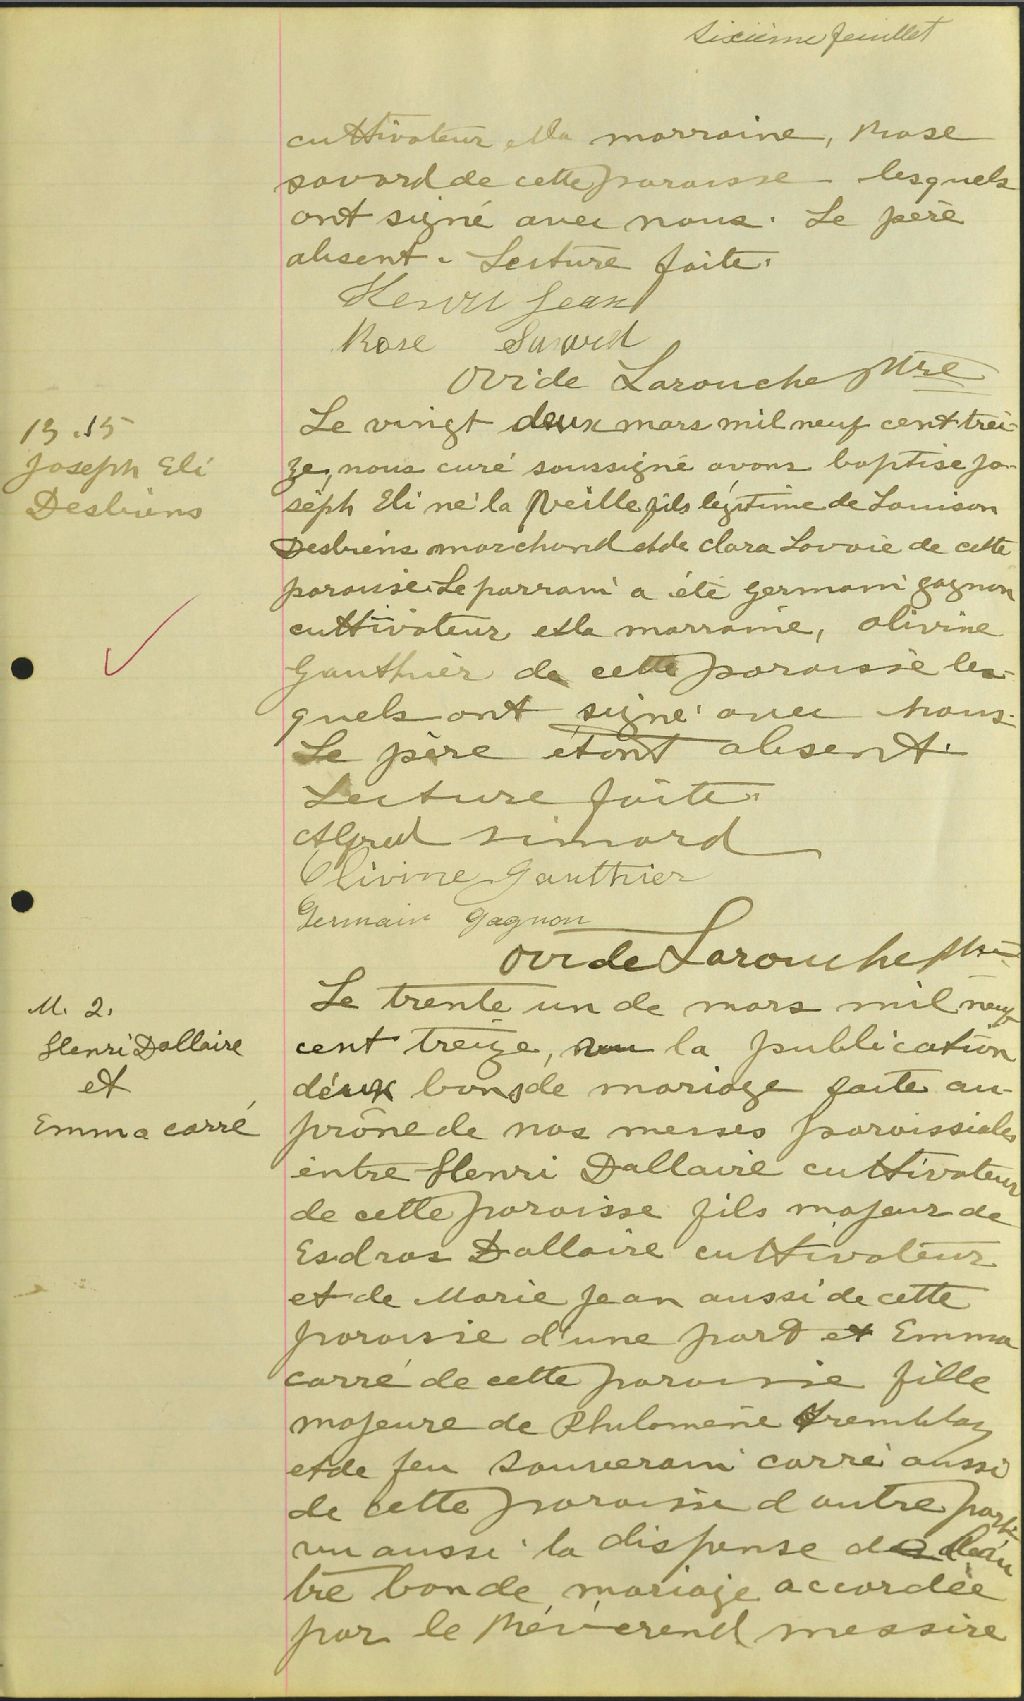 Sixième feuillet
cultivateur et la marraine, Rose
Savard de cette paroisse lesquels
ont signé avec nous. Le père
absent. Lecture faite.
Henri Jean
Rose Savard
Ovide Larouche Ptre
B. 15
Joseph Eli
Desbiens
Le vingt deux mars mil neuf cent trei-
ze, nous curé soussigné avons baptise Jo-
seph Eli né la veille fils légitime de Louison
Desbiens marchand et de Clara Lavoie de cette
paroisse. Le parrain a été Germain Gagnon
cultivateur et la marraine, Olivine
Gauthier de cette paroisse les-
quels ont signé avec nous.
Le père étant absent.
Lecture faite.
Alfred Simard
Olivine Gauthier
Germain Gagnon
Ovide Larouche Ptre
M. 2.
Henri Dallaire
et
Emma Carré
Le trente un de mars mil neuf
cent treize, vu la publication
deux bans de mariage faite au
prône de nos messes paroissiales
entre Henri Dallaire cultivateur
de cette paroisse fils majeur de
Esdras Dallaire cultivateur
et de Marie Jean aussi de cette
paroisse d'une part et Emma
Carré de cette paroisse fille
majeure de Philomène Tremblay
et de feu Souverain Carré aussi
de cette paroisse d'autre part
vu aussi la dispense
tre ban de mariage accordée
par le Révérend messire